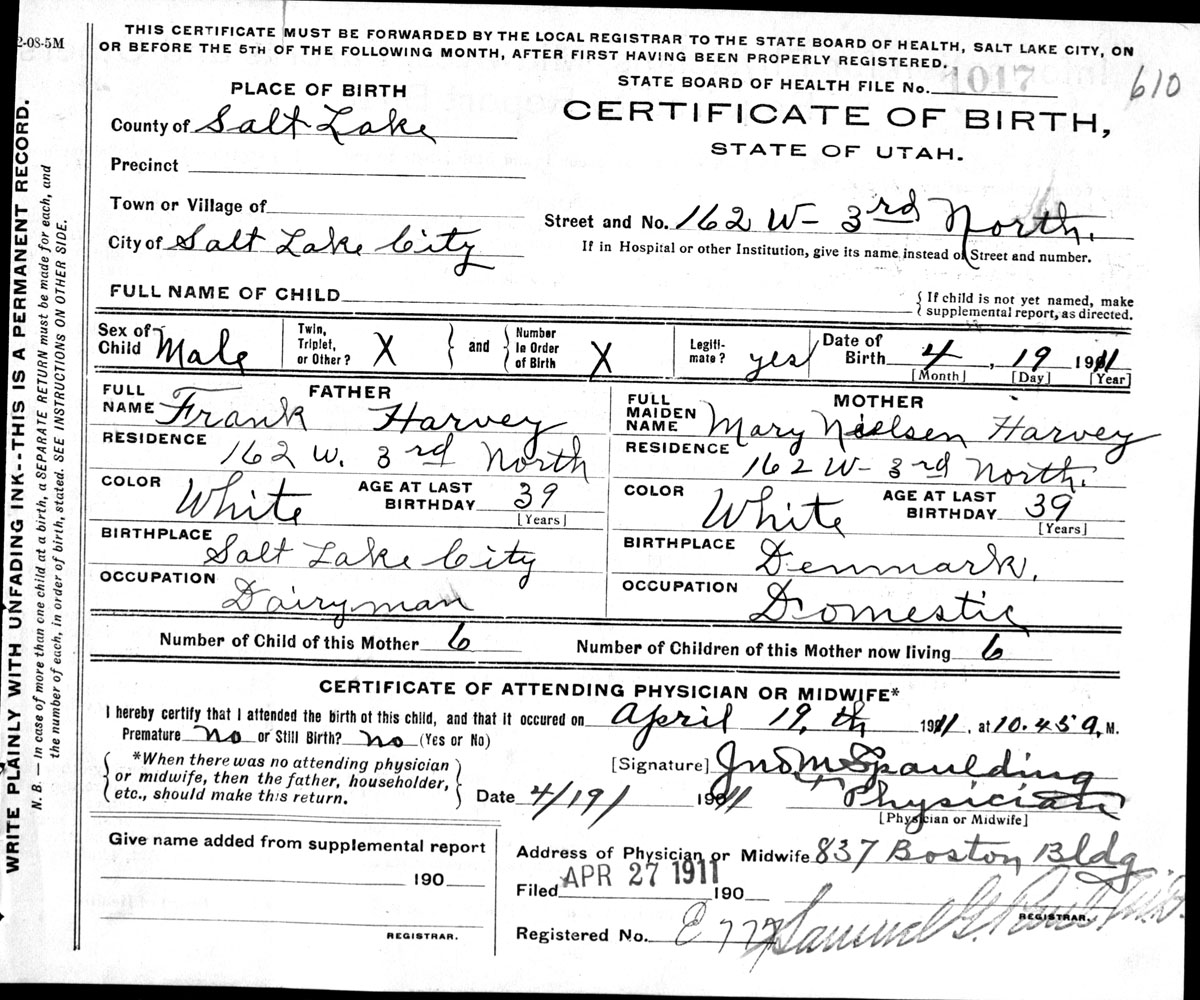 2-08-5M
THIS CERTIFICATE MUST BE FORWARDED BY THE LOCAL REGISTRAR TO THE STATE BOARD OF HEALTH, SALT LAKE CITY, ON
OR BEFORE THE 5TH OF THE FOLLOWING MONTH, AFTER FIRST HAVING BEEN PROPERLY REGISTERED.
STATE BOARD OF HEALTH FILE No. 1017
610
PLACE OF BIRTH
CERTIFICATE OF BIRTH,
STATE OF UTAH.
County of Salt Lake
Precinct
Town or Village of
Street and No. 162 W- 3rd North.
City of Salt Lake City
If in Hospital or other Institution, give its name instead of Street and number.
FULL NAME OF CHILD
{ If child is not yet named, make
supplemental report, as directed.
Sex of Child Male
Twin, Triplet, or Other? X } and { Number in Order of Birth X
Legiti-mate? yes
Date of Birth 4, 19 1911
[Month] [Day] [Year]
FATHER
FULL NAME Frank Harvey
RESIDENCE 162 W. 3rd North
COLOR White AGE AT LAST BIRTHDAY 39
[Years]
BIRTHPLACE Salt Lake City
OCCUPATION Dairyman
MOTHER
FULL MAIDEN NAME Mary Nielsen Harvey
RESIDENCE 162 W- 3rd North.
COLOR White AGE AT LAST BIRTHDAY 39
[Years]
BIRTHPLACE Denmark.
OCCUPATION Domestic
Number of Child of this Mother 6 Number of Children of this Mother now living 6
CERTIFICATE OF ATTENDING PHYSICIAN OR MIDWIFE*
I hereby certify that I attended the birth of this child, and that it occured on April 19, th 1911, at 10.45 a, M.
Premature no or Still Birth? no (Yes or No)
{ *When there was no attending physician
or midwife, then the father, householder,
etc., should make this return. }
[Signature] Jno M Spaulding
Date 4/19/ 1911 Physician
[Physician or Midwife]
Give name added from supplemental report
190
REGISTRAR.
Address of Physician or Midwife 837 Boston Bldg
Filed APR 27 1911 190
Samuel G.
REGISTRAR.
Registered No. E 777
WRITE PLAINLY WITH UNFADING INK--THIS IS A PERMANENT RECORD.
N. B. — In case of more than one child at a birth, a SEPARATE RETURN must be made for each, and
the number of each, in order of birth, stated. SEE INSTRUCTIONS ON OTHER SIDE.